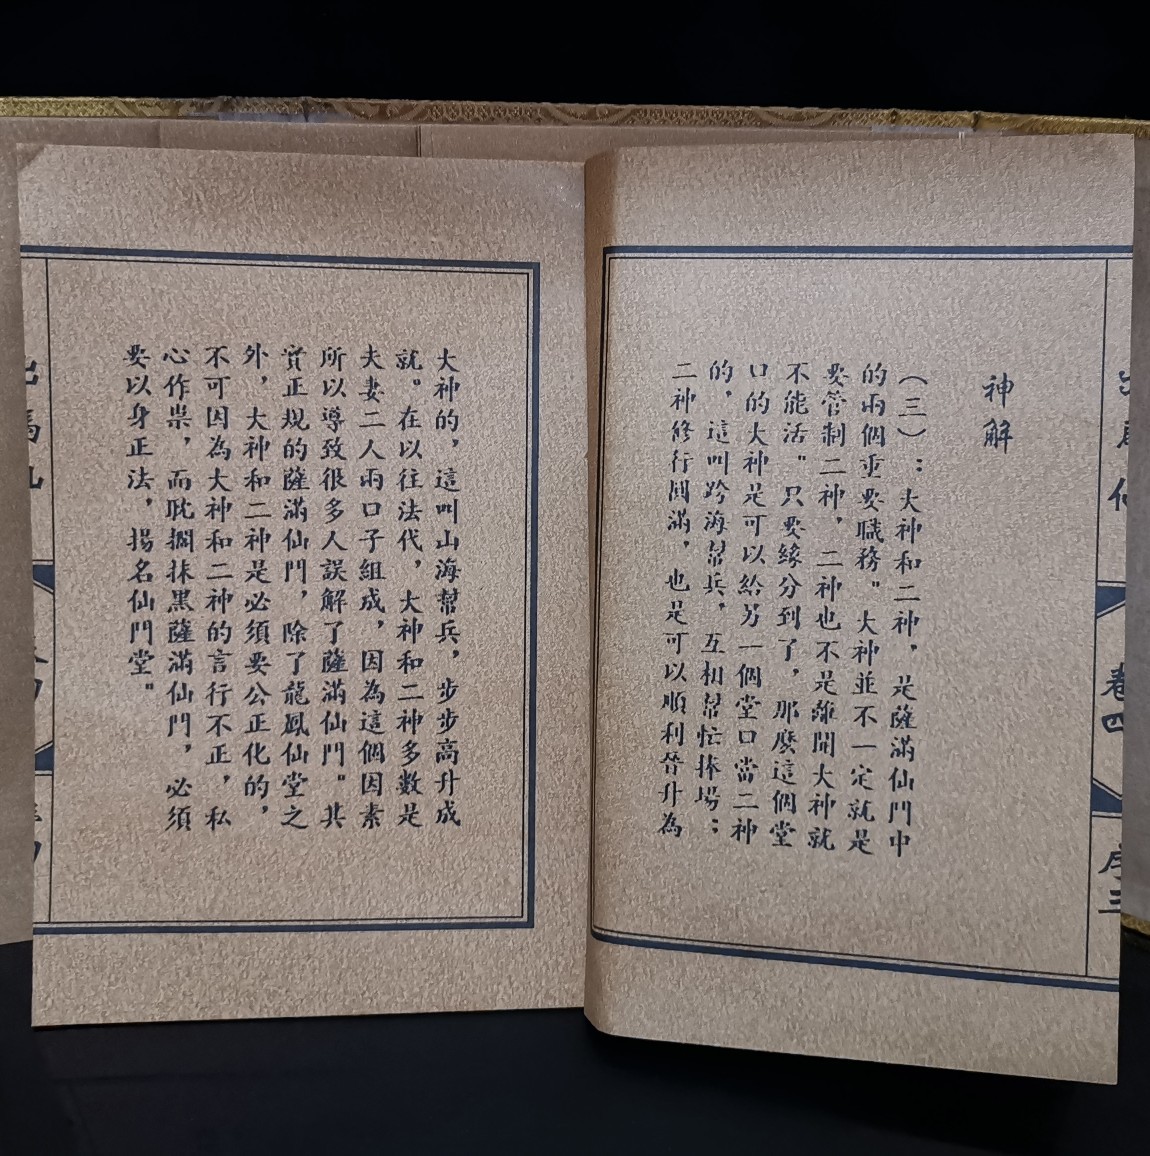 卷四
序三
神解
（三）：大神和二神，是薩滿仙門中
的兩個重要職務。大神並不一定就是
要管制二神，二神也不是離開大神就
不能活。只要緣分到了，那麼這個堂
口的大神是可以給另一個堂口當二神
的，這叫跨海幫兵，互相幫忙捧場；
二神修行圓滿，也是可以順利晉升為
大神的，這叫山海幫兵，步步高升成
就。在以往法代，大神和二神多數是
夫妻二人兩口子組成，因為這個因素
所以導致很多人誤解了薩滿仙門。其
實正規的薩滿仙門，除了龍鳳仙堂之
外，大神和二神是必須要公正化的，
不可因為大神和二神的言行不正，私
心作祟，而耽擱抹黑薩滿仙門，必須
要以身正法，揚名仙門堂。